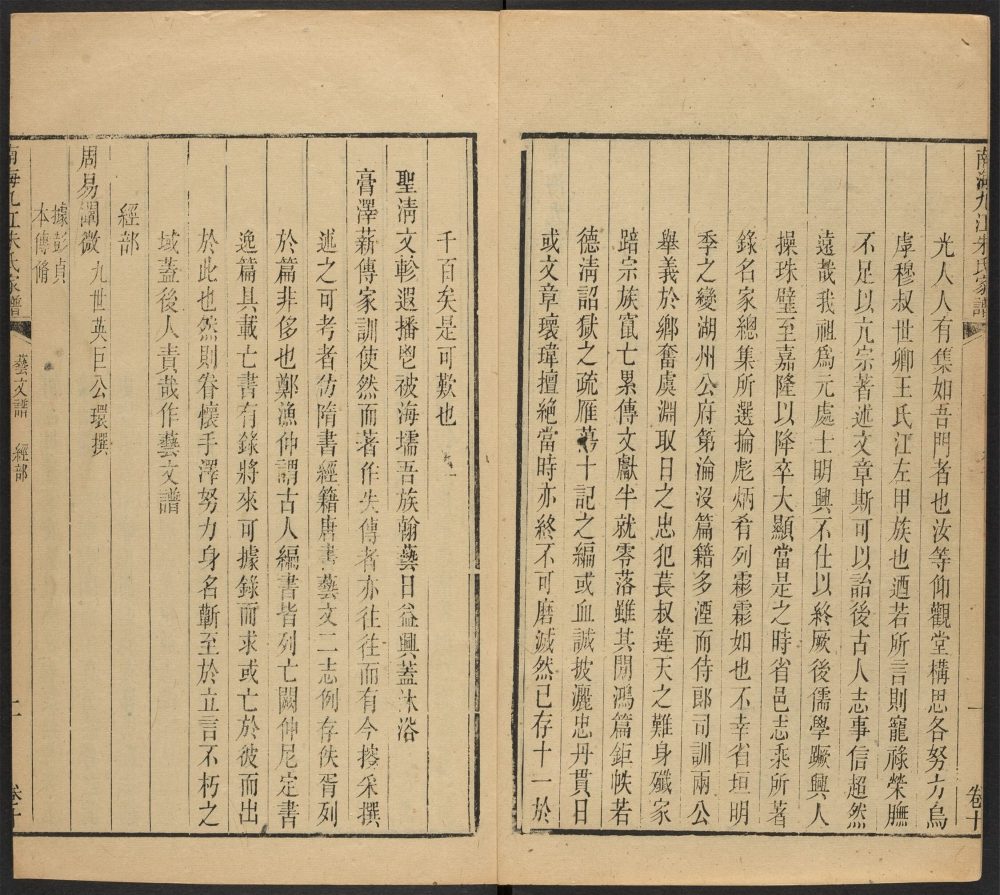 光人人有集如吾門者也汝等仰觀堂構思各努力烏
虖穆叔世卿王氏江左甲族也迺若所言則寵祿榮膴
不足以亢宗著述文章斯可以詒後古人志事信超然
遠哉我祖爲元處士明興不仕以終厥後儒學蹶興人
操珠璧至嘉隆以降卒大顯當是之時省邑志乘所著
錄名家總集所選掄彪炳肴列霖霖如也不幸省垣明
季之變湖州公府第淪沒篇籍多湮而侍郎司訓兩公
舉義於鄉奮虞淵取日之忠犯萇叔違天之難身殲家
踣宗族竄亡累傳文獻半就零落雖其閒鴻篇鉅帙若
德淸詔獄之疏雁蕩十記之編或血誠披灑忠丹貫日
或文章瓌瑋擅絕當時亦終不可磨滅然已存十一於
南海九江朱氏家譜
一
卷十
千百矣是可歎也
聖淸文軫遐播鬯被海壖吾族翰藝日益興蓋沐浴
膏澤薪傳家訓使然而著作失傳者亦往往而有今搜采撰
述之可考者仿隋書經籍唐書藝文二志例存佚胥列
於篇非侈也鄭漁仲謂古人編書皆列亡闕仲尼定書
逸篇具載亡書有錄將來可據錄而求或亡於彼而出
於此也然則眷懷手澤努力身名蘄至於立言不朽之
域蓋後人責哉作藝文譜
經部
周易闡微 九世英巨公環撰
據彭貞
本傳脩
南海九江朱氏家譜
藝文譜 經部
二
卷十